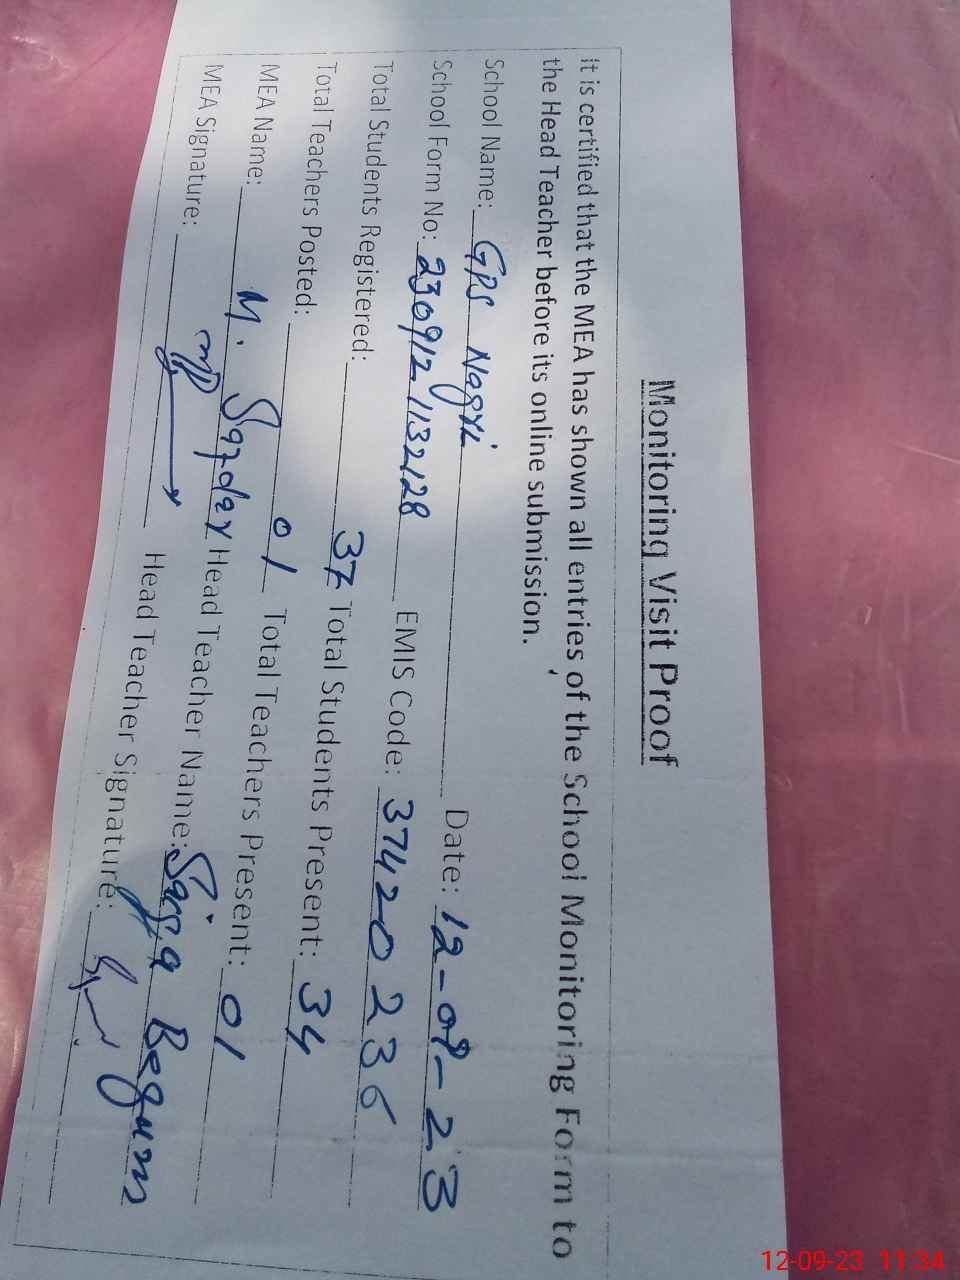 Monitoring Visit Proof
It is certified that the MEA has shown all entries of the School Monitoring Form to
the Head Teacher before its online submission.
School Name: GPS Nagri Date: 12-09-23
School Form No: 230912 1132128 EMIS Code: 37420236
Total Students Registered: 37 Total Students Present: 34
Total Teachers Posted: 01 Total Teachers Present: 01
MEA Name: M. Safdar Head Teacher Name: Sajja Begum
MEA Signature: Head Teacher Signature:
12-09-23 11:34